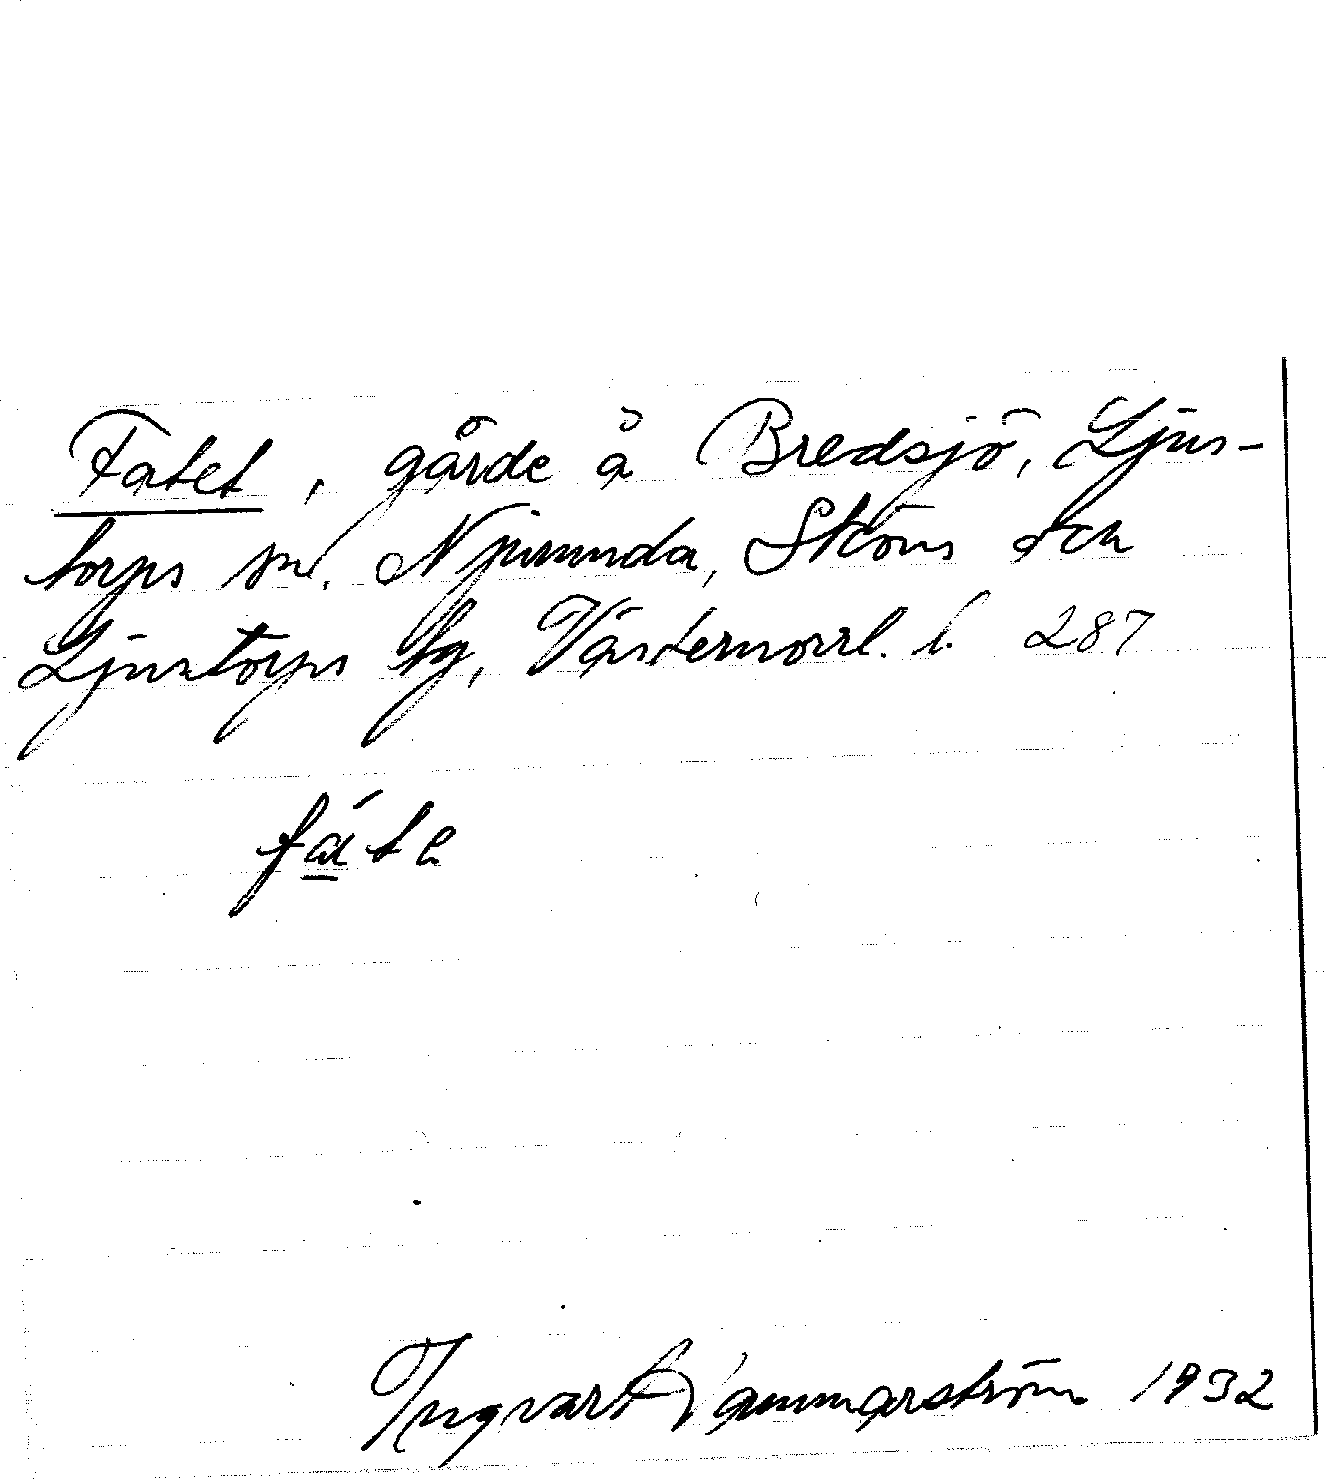 Fatet, gärde å Bredsjö, Ljus-
torps sn. Njurunda, Sköns och
Ljustorps tg, Västernorrl. l. 287
fá̱te
Ingvart Hammarström 1932